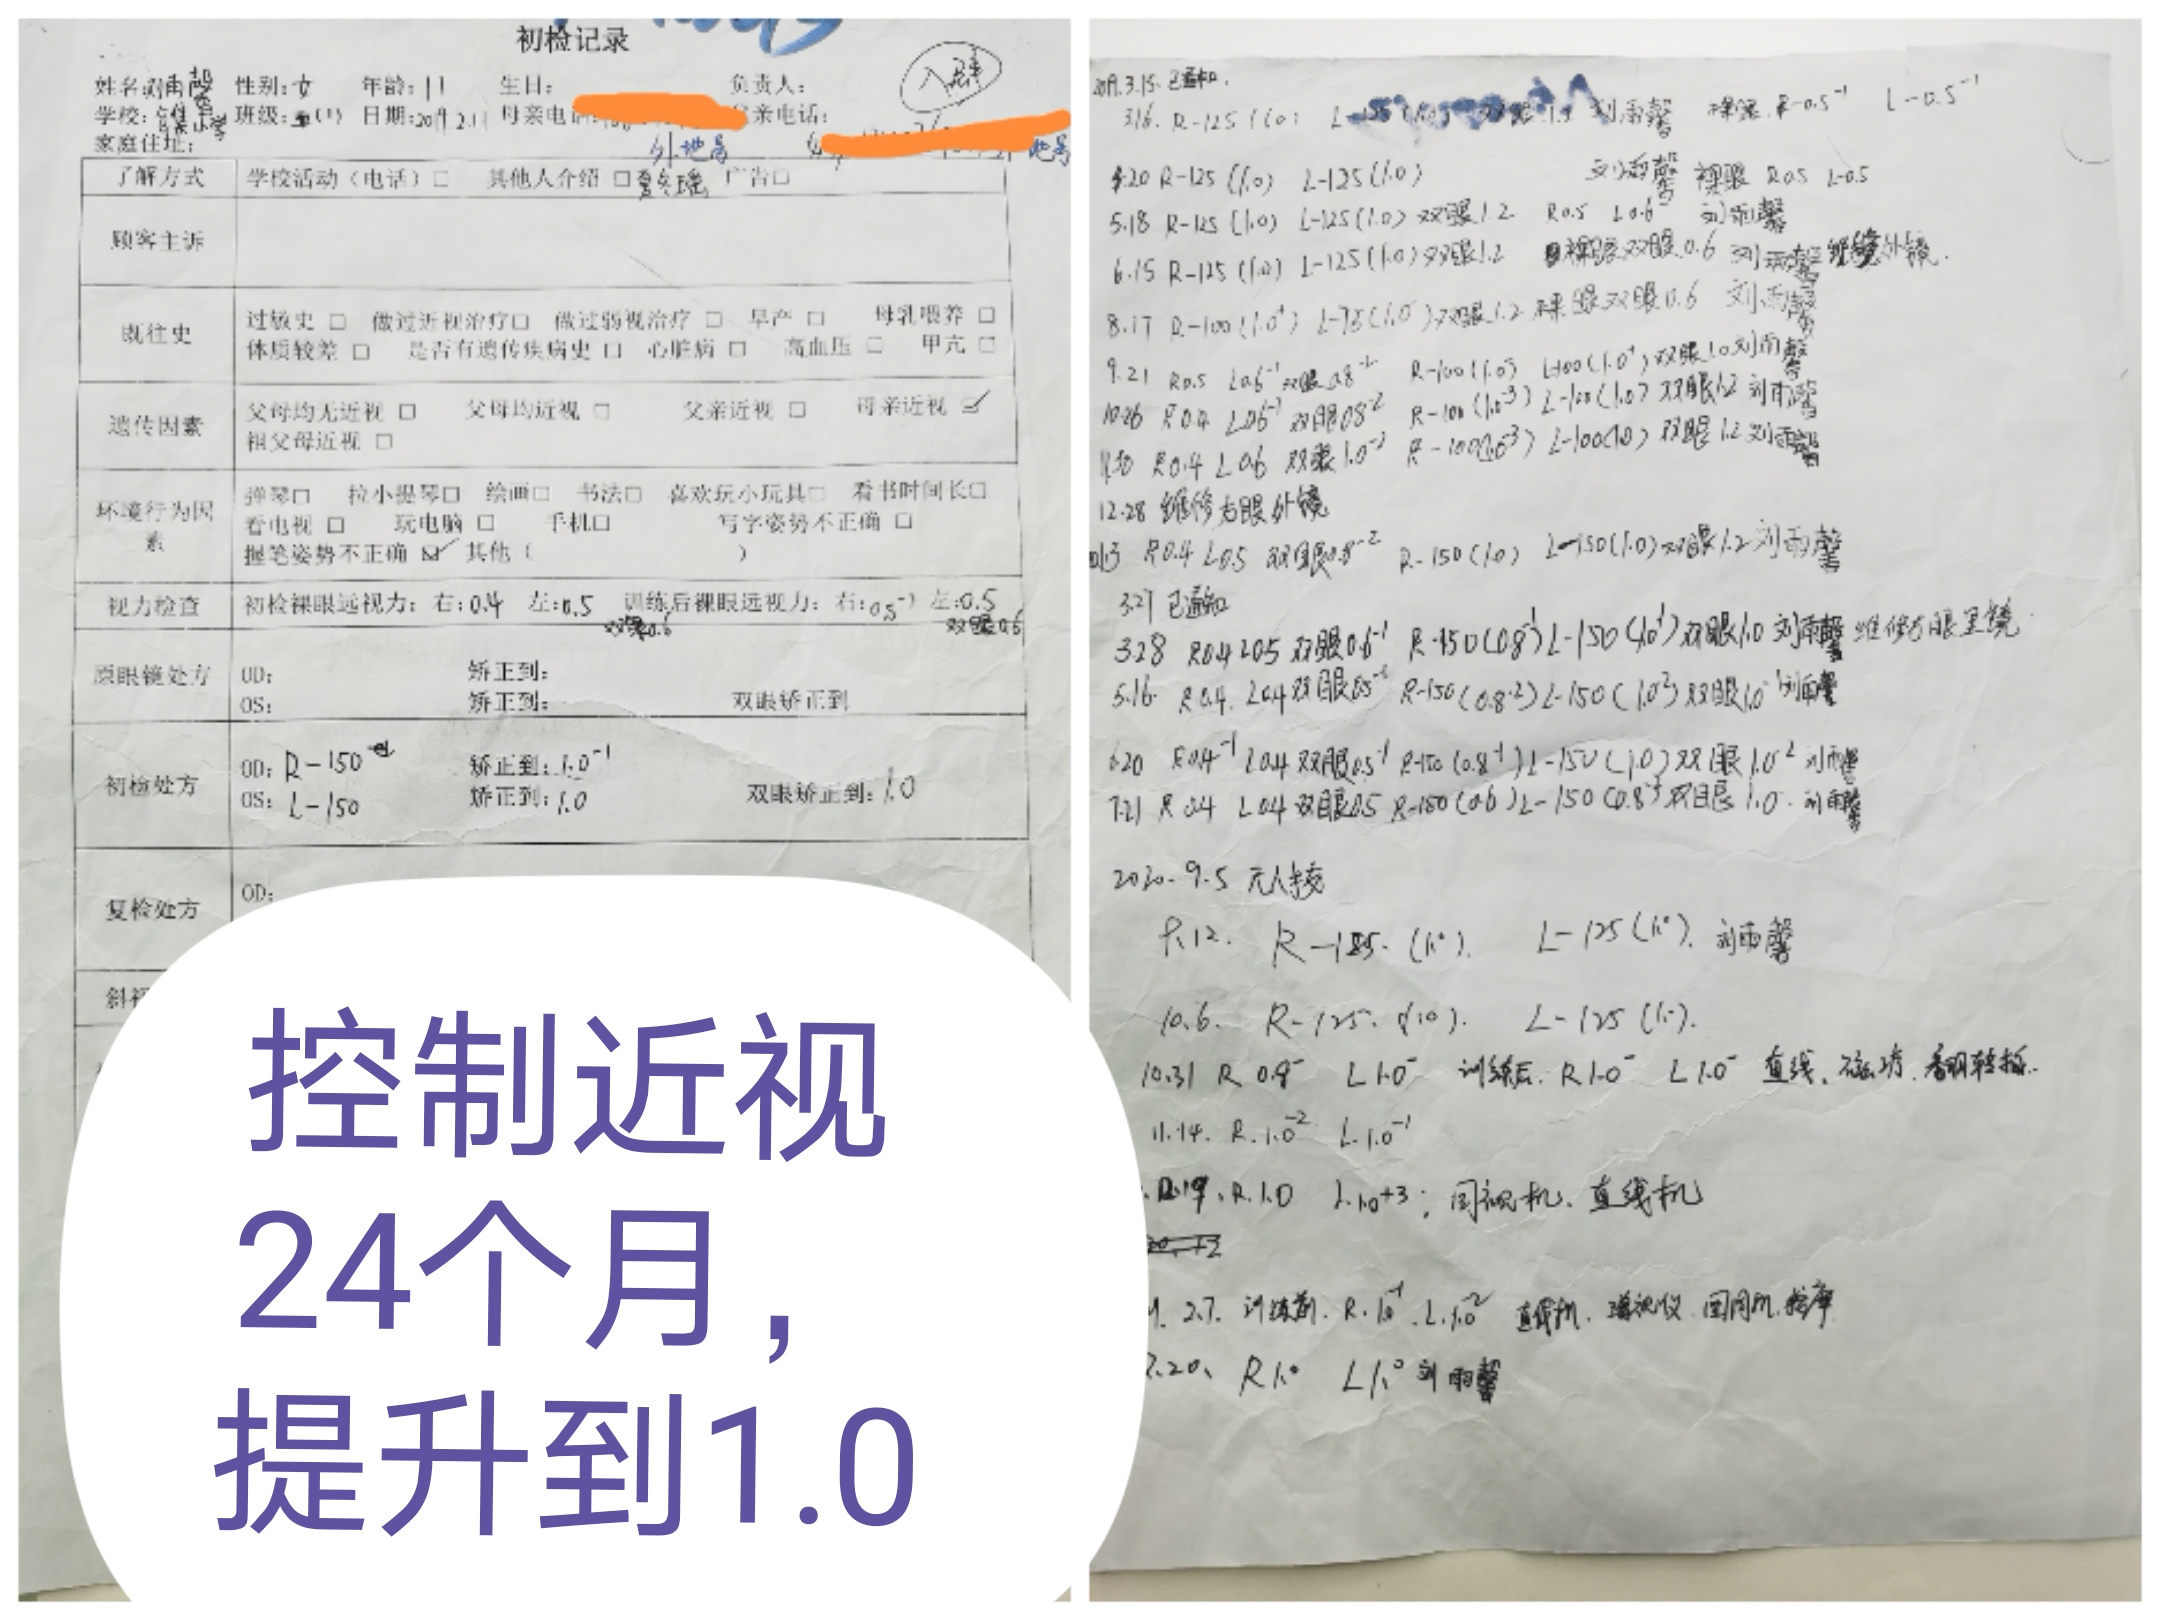 初检记录
入群
姓名: 刘雨馨 性别: 女 年龄: 11 生日: 负责人:
学校: 小学 班级: 五(1) 日期: 2019.2.11 母亲电话: 父亲电话:
家庭住址: 外地号 地号
了解方式 学校活动（电话）□ 其他人介绍 □ 广告□
顾客主诉
既往史 过敏史 □ 做过近视治疗□ 做过弱视治疗 □ 早产 □ 母乳喂养 □
体质较差 □ 是否有遗传疾病史 □ 心脏病 □ 高血压 □ 甲亢 □
遗传因素 父母均无近视 □ 父母均近视 □ 父亲近视 □ 母亲近视 ☑
祖父母近视 □
环境行为因素 弹琴□ 拉小提琴□ 绘画□ 书法□ 喜欢玩小玩具□ 看书时间长□
看电视 □ 玩电脑 □ 手机□ 写字姿势不正确 □
握笔姿势不正确 ☑ 其他（ ）
视力检查 初检裸眼远视力: 右: 0.4 左: 0.5 训练后裸眼远视力: 右: 0.5⁻¹ 左: 0.5
双眼0.6 双眼0.6
原眼镜处方 OD: 矫正到:
OS: 矫正到: 双眼矫正到
初检处方 OD: R-150 矫正到: 1.0⁻¹
OS: L-150 矫正到: 1.0 双眼矫正到: 1.0
复检处方 OD:
斜视
控制近视
24个月，
提升到1.0
2019.3.15. 已通知.
3.16. R-125 (1.0) 刘雨馨 裸眼. R-0.5⁻¹ L-0.5⁻¹
4.20 R-125 (1.0) L-125 (1.0) 刘雨馨 裸眼 R0.5 L0.5
5.18 R-125 (1.0) L-125 (1.0) 双眼1.2 R0.5 L0.6⁻ 刘雨馨
6.15 R-125 (1.0) L-125 (1.0) 双眼1.2 裸眼双眼0.6 刘雨馨 维修外镜.
8.17 R-100 (1.0⁺) L-75 (1.0⁻) 双眼1.2 裸眼双眼0.6 刘雨馨
9.21 R0.5 L0.6⁻¹ 双眼0.8⁻² R-100 (1.0⁻³) L-100 (1.0⁺) 双眼1.0 刘雨馨
10.26 R0.4 L0.6⁻¹ 双眼0.8⁻² R-100 (1.0⁻³) L-100 (1.0) 双眼1.2 刘雨馨
11.30 R0.4 L0.6 双眼1.0⁻² R-100 (1.0⁻³) L-100 (1.0) 双眼1.2 刘雨馨
12.28 维修右眼外镜
R0.4 L0.5 双眼0.8⁻² R-150 (1.0) L-150 (1.0) 双眼1.2 刘雨馨
3.27 已通知
3.28 R0.4 L0.5 双眼0.6⁻¹ R-150 (0.8⁻¹) L-150 (1.0⁻¹) 双眼1.0 刘雨馨 维修右眼里镜
5.16. R0.4. L0.4 双眼0.5⁻¹ R-150 (0.8⁻²) L-150 (1.0⁻²) 双眼1.0⁻¹ 刘雨馨
6.20 R0.4⁻¹ L0.4 双眼0.5⁻¹ R-150 (0.8⁻¹) L-150 (1.0) 双眼1.0⁻² 刘雨馨
7.21 R0.4 L0.4 双眼0.5 R-150 (0.6) L-150 (0.8⁻³) 双眼1.0. 刘雨馨
2020.9.5 无人接
9.12. R-125. (1.0). L-125 (1.0). 刘雨馨
10.6. R-125. (1.0). L-125 (1.0).
10.31 R 0.8⁻ L 1.0⁻ 训练后. R1.0⁻ L1.0⁻ 直线.
11.14. R.1.0⁻² L.1.0⁻¹
12.19. R.1.0 L.1.0⁺³; 同视机. 直线机
2.7. 训练前. R.1.0⁻¹. L.1.0⁻² 按摩
2.20. R1.0 L1.0 刘雨馨